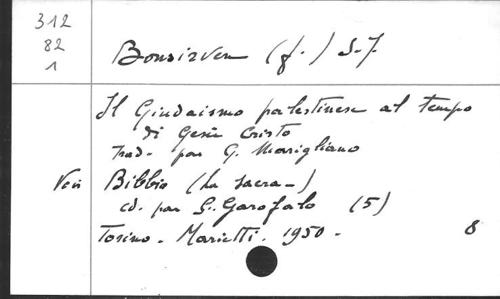 312
82
1
Bonsirven (J.) S.J.
Il Giudaismo palestinese al tempo
di Gesù Cristo
Trad. par G. Marigliano
Voir Bibbia (La sacra-)
ed. par S. Garofalo (5)
Torino. Marietti. 1950 - 8